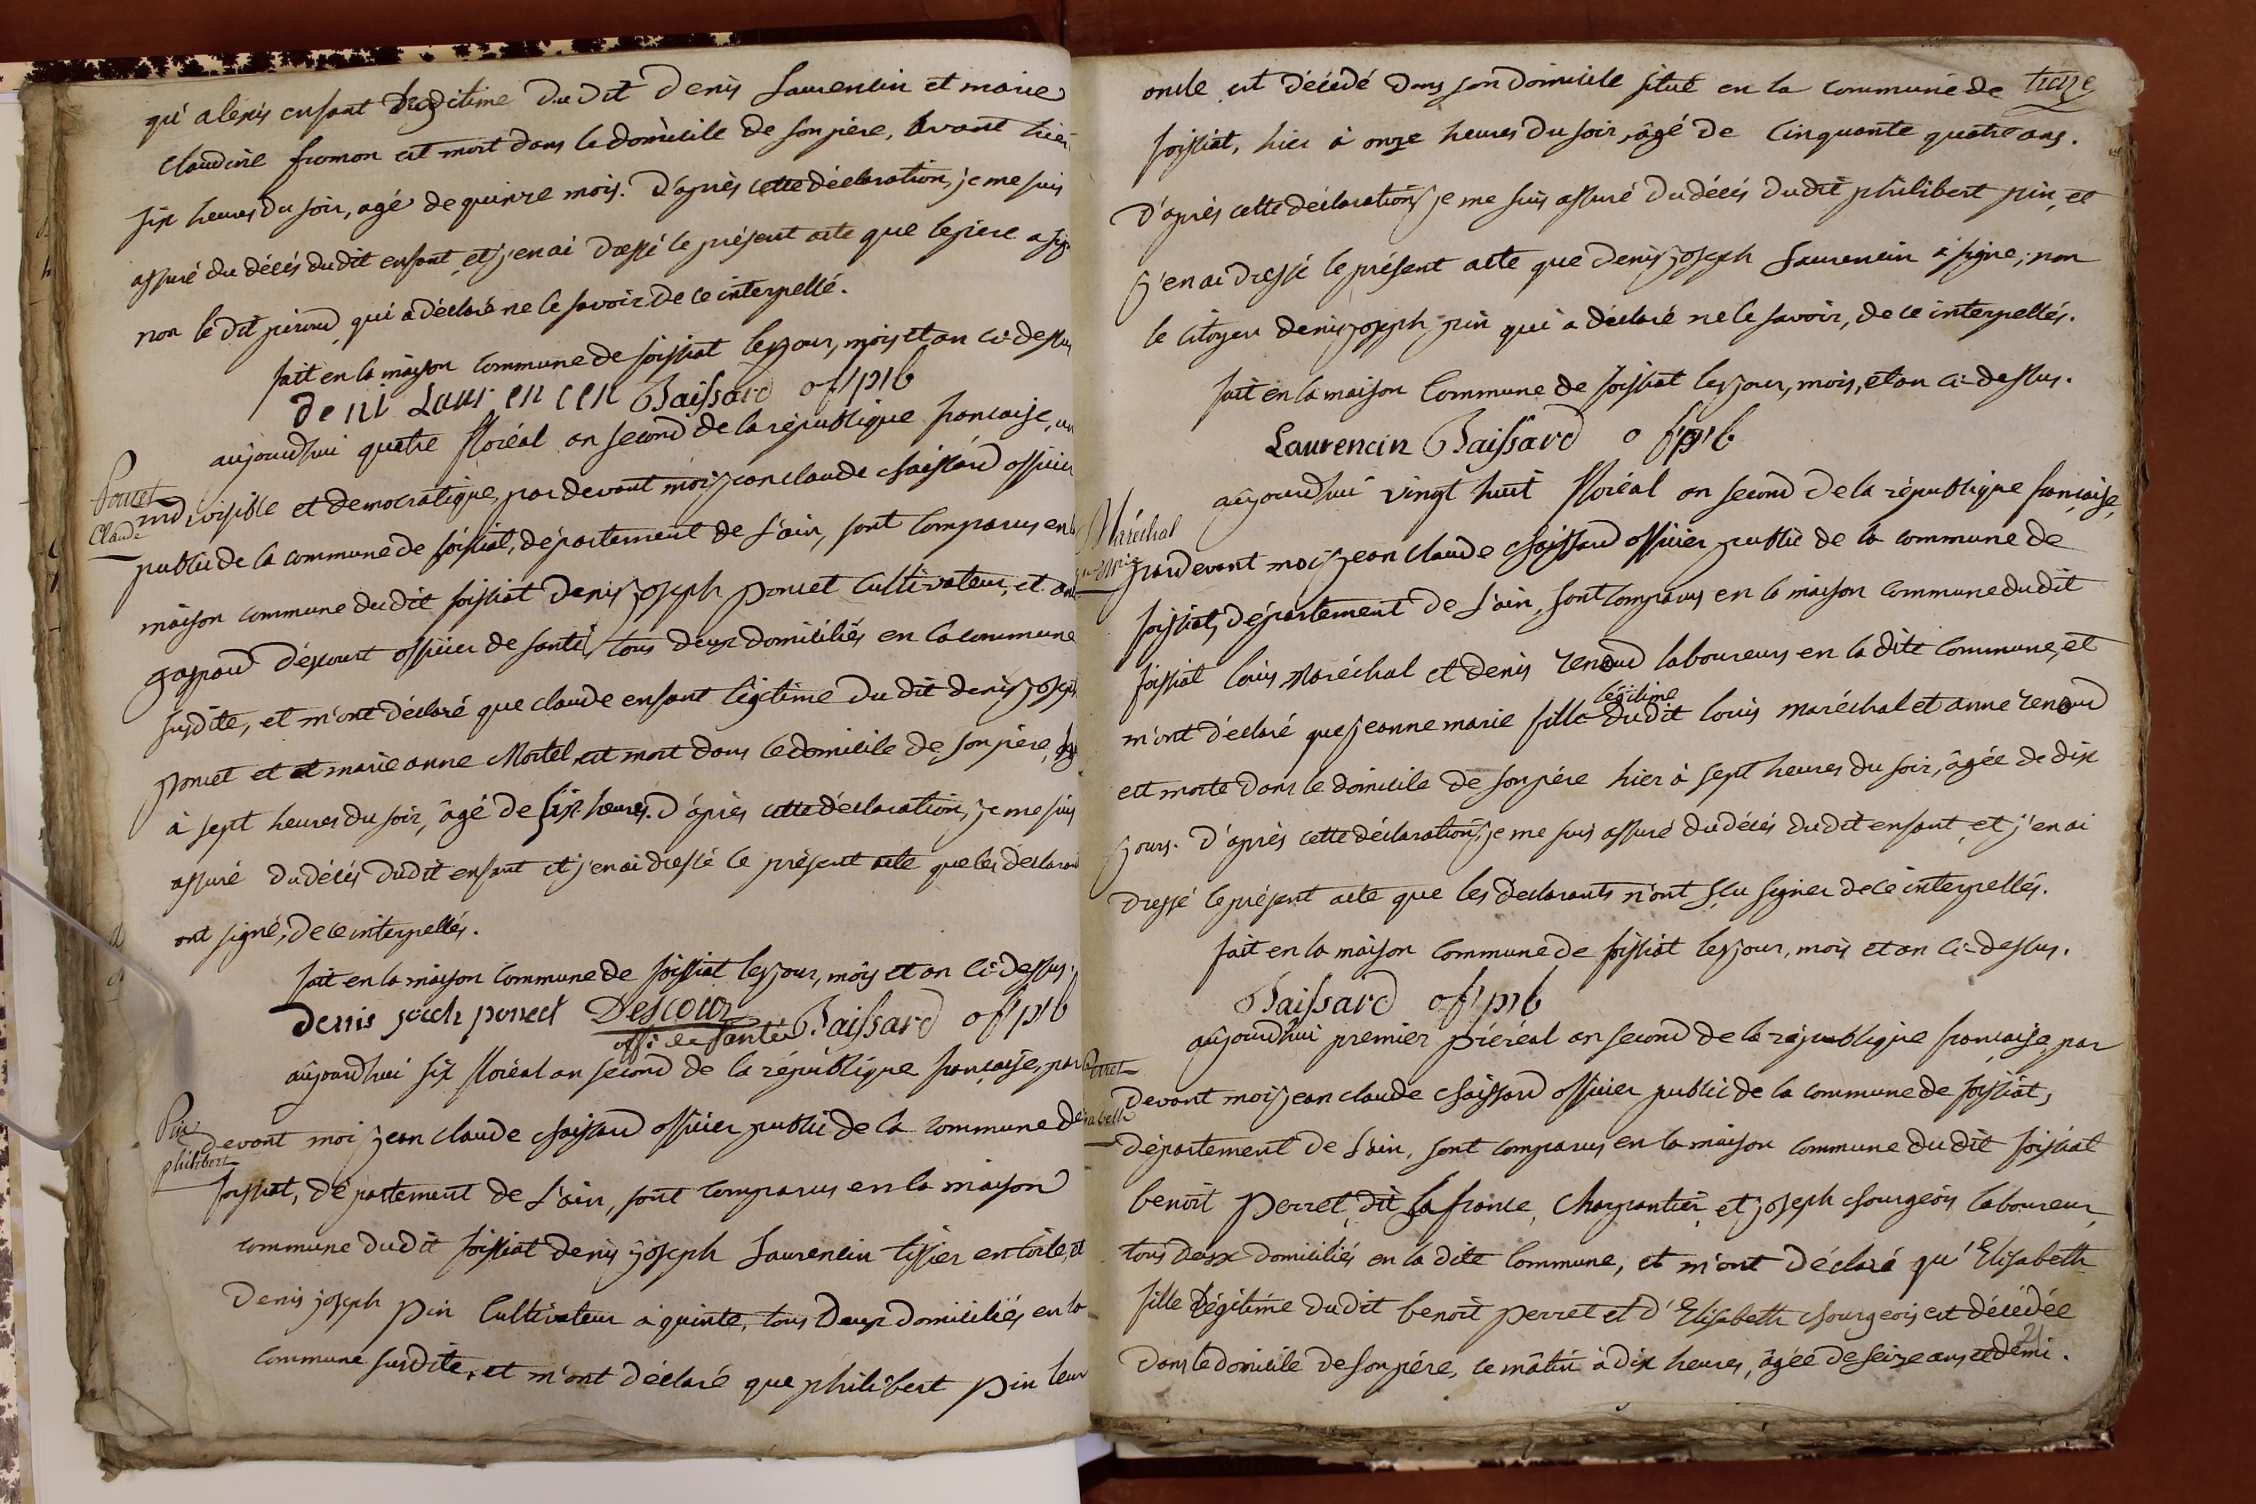 qu'alexis enfant légitime du dit Denis Laurencin et marie
claudine fromon est mort dans le domicile de son père, avant hier
six heures du soir, agé de quinze mois. D'après cette déclaration, je me suis
assuré du décès du dit enfant et j'en ai dressé le présent acte que le père a sig
non le dit qui a déclaré ne le savoir de ce interpellé.
fait en la maison commune de foissiat les jour, mois et an ci-dessus
deni Laurencen Baissard off pib
aujourdhui quatre floréal an second de la république française, un
Poncet
Claude
indivisible et democratique, par devant moi jean claude chaissard officier
public de la commune de foissiat, département de L'ain, sont comparus en la
maison commune du dit foissiat Denis joseph poncet cultivateur, et
gaspard déscourt officier de santé, tous deux domiciliés en la commune
susdite, et m'ont déclaré que claude enfant légitime du dit denis joseph
poncet et et marie anne Mortel, est mort dans le domicile de son père,
à sept heures du soir, âgé de six heures. D'après cette déclaration, je me suis
assuré du décès du dit enfant et j'en ai dressé le présent acte que les déclarant
ont signé, de ce interpellés.
fait en la maison commune de foissiat les jour, mois et an ci-dessus.
denis joseh poncet Descour Baissard off pib
offi. de santé
aujourdhui six floréal an second de la république française, par
Pin
philibert
devant moi jean claude chaissard officier public de la commune de
foissiat, département de L'ain, sont comparus en la maison
commune du dit foissiat denis joseph Laurencin tissier en toile, et
Denis joseph pin cultivateur à quinte, tous deux domiciliés en la
commune susdite, et m'ont déclaré que philibert pin leur
oncle est décédé dans son domicile situé en la commune de treize
foissiat, hier à onze heures du soir, âgé de cinquante quatre ans.
D'après cette déclaration, je me suis assuré du décès du dit philibert pin, et
j'en ai dressé le présent acte que denis joseph Laurencin a signe, non
le citoyen denis joseph pin qui a déclaré ne le savoir, de ce interpellés.
fait en la maison commune de foissiat les jour, mois, et an ci-dessus.
Laurencin Baissard off pib
aujourdhui vingt huit floréal an second de la république française,
Maréchal
pardevant moi jean claude chaissard officier public de la commune de
foissiat, département de L'ain, sont comparus en la maison commune du dit
foissiat louis Maréchal et denis renoud laboureurs en la dite commune, et
m'ont déclaré que jeanne marie fille légitime du dit louis maréchal et anne renoud
est morte dans le domicile de son père hier à sept heures du soir, âgée de dix
jours. D'après cette déclaration, je me suis assuré du décès du dit enfant, et j'en ai
dressé le présent acte que les déclarants n'ont sçu signer de ce interpellés.
fait en la maison commune de foissiat les jour, mois et an ci-dessus.
Baissard off pib
aujourdhui premier préréal an second de la république française, par
devant moi jean claude chaissard officier public de la commune de foissiat,
département de L'ain, sont comparus en la maison commune du dit foissiat
benoit Perret, dit la france, charpantier, et joseph chourgeois laboureur,
tous deux domiciliés en la dite commune, et m'ont déclaré qu'Elisabeth
fille légitime du dit benoit perret et d'Elisabeth chourgeois est décédée
dans le domicile de son père, ce mâtin à dix heures, âgée de seize ans et demi.
21